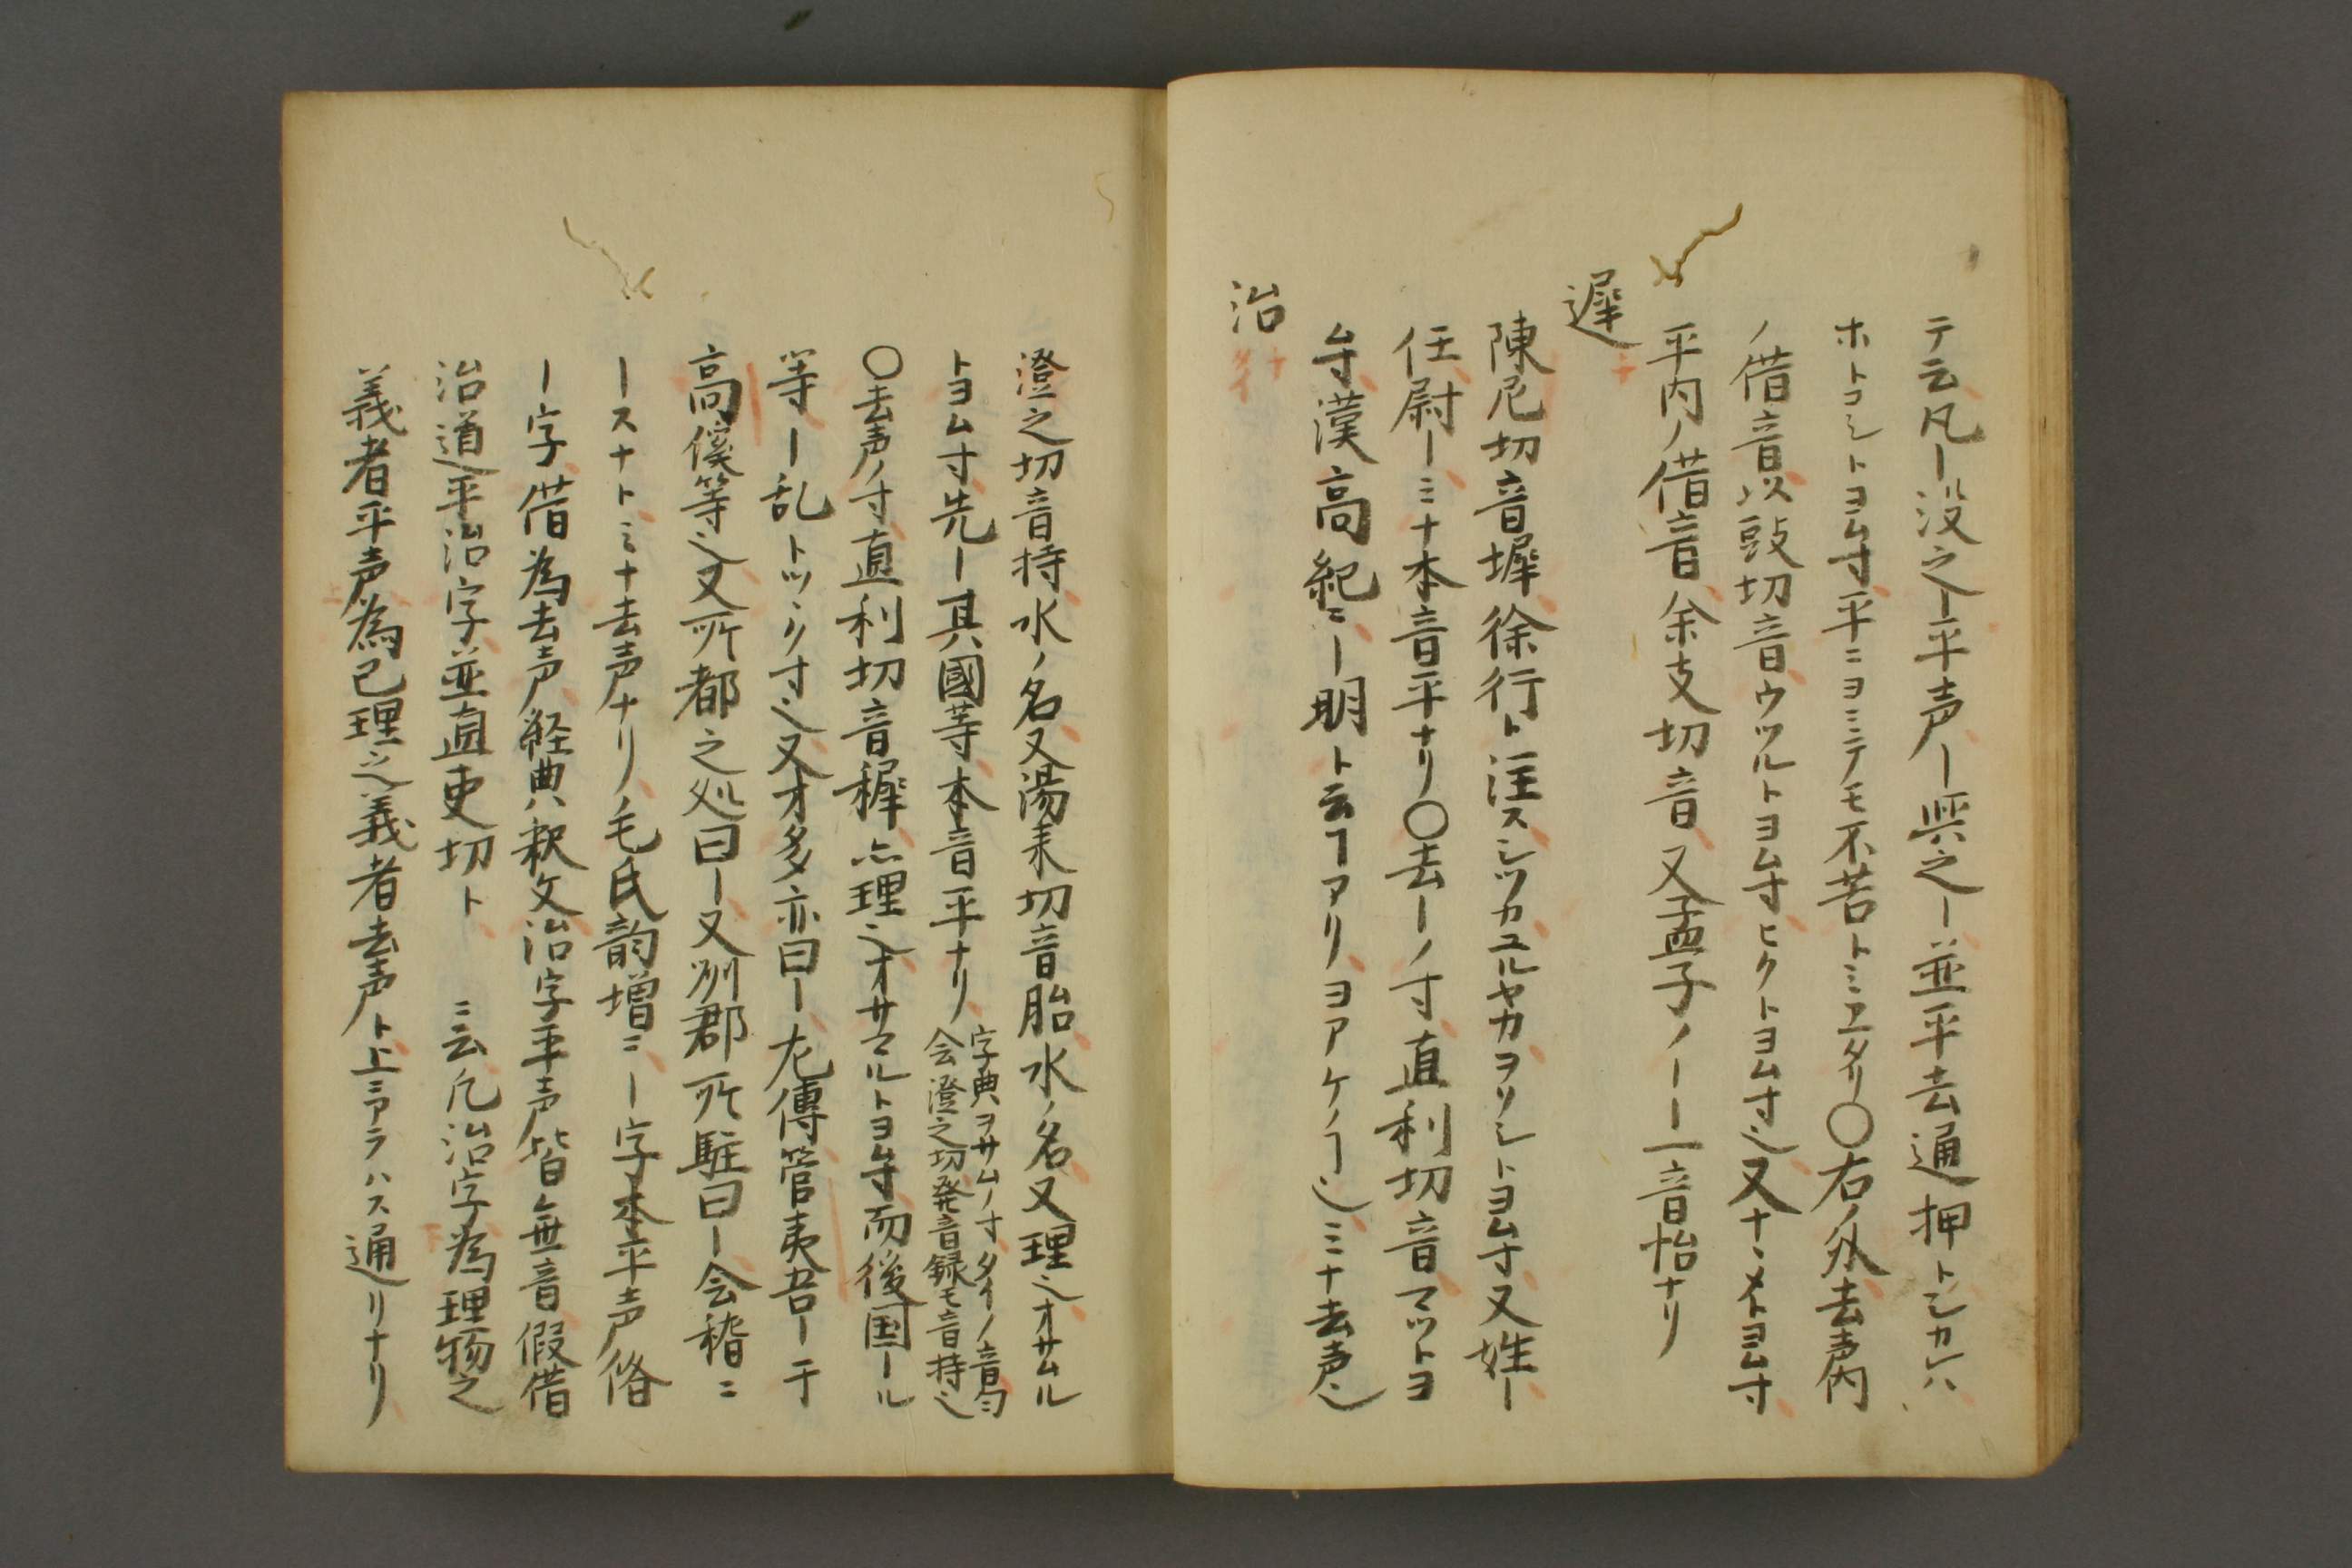 テ云凡ー没之ー平声ー與之ー並平去通押トシカレハ
ホトコシトヨム寸平ニヨミテモ不苦トミエタリ〇右ノ外去声内
ノ借音以豉切音ウツルトヨム寸ヒクトヨム寸也又ナヽメトヨム寸
平内ノ借音余支切音又孟子ノーー音怡ナリ
遲
陳尼切音墀徐行ト注スシツカユルヤカヲソシトヨム寸又姓ー
任尉ーミナ本音平ナリ〇去ーノ寸直利切音マツトヨ
ム寸漢高紀ニー明ト云ヿアリヨアケノヿ也ミナ去声也
治
澄之切音持水ノ名又湯来切音胎水ノ名又理也オサムル
トヨム寸先ー其國等本音平ナリ
字典ヲサムノ寸タイノ音勻
会澄之切発音録モ音持也
〇去声ノ寸直利切音稺亦理也オサマルトヨム寸而後国ール
等ー乱トツヽク寸也又才多亦曰ー左傳管夷吾ー于
高傒等也又所都之処曰ー又州郡所駐曰ー会稽ニ
ースナトミナ去声ナリノ毛氏韵増ニー字本平声脩
ー字借為去声経典釈文治字平声皆無音假借
治道平治字並直吏切ト
ニ云凡治字為理物之
義者平声為已理之義者去声ト上ニアラハス通リナリ